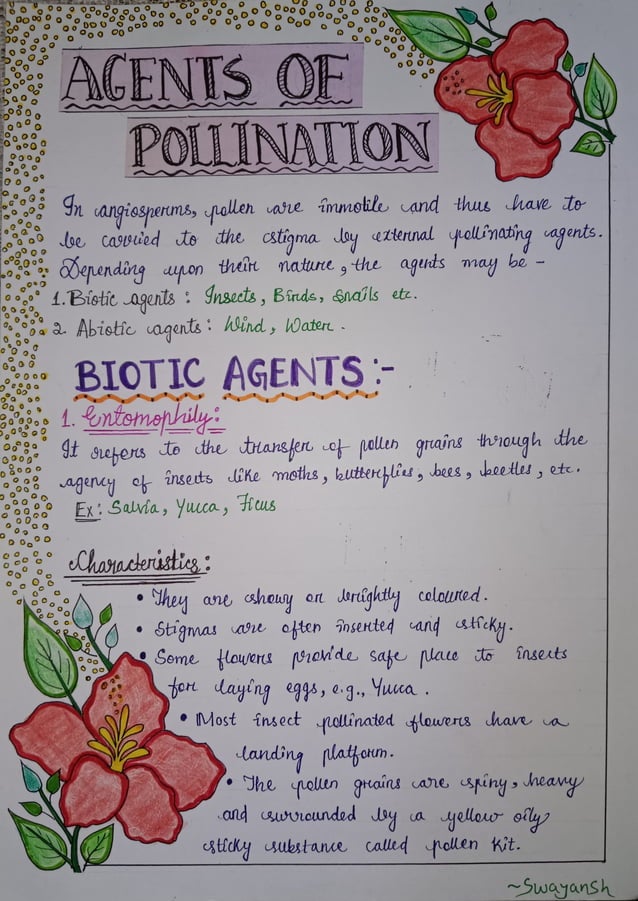 AGENTS OF
POLLINATION
In angiosperms, pollen are immotile and thus have to
be carried to the stigma by external pollinating agents.
Depending upon their nature, the agents may be -
1. Biotic agents : Insects, Birds, Snails etc.
2. Abiotic agents : Wind, Water.
BIOTIC AGENTS :-
1. Entomophily :
It refers to the transfer of pollen grains through the
agency of insects like moths, butterflies, bees, beetles, etc.
Ex : Salvia, Yucca, Ficus
Characteristics :
• They are showy or brightly coloured.
• Stigmas are often inserted and sticky.
• Some flowers provide safe place to insects
for laying eggs, e.g., Yucca.
• Most insect pollinated flowers have a
landing platform.
• The pollen grains are spiny, heavy
and surrounded by a yellow oily
sticky substance called pollen kit.
~Swayansh